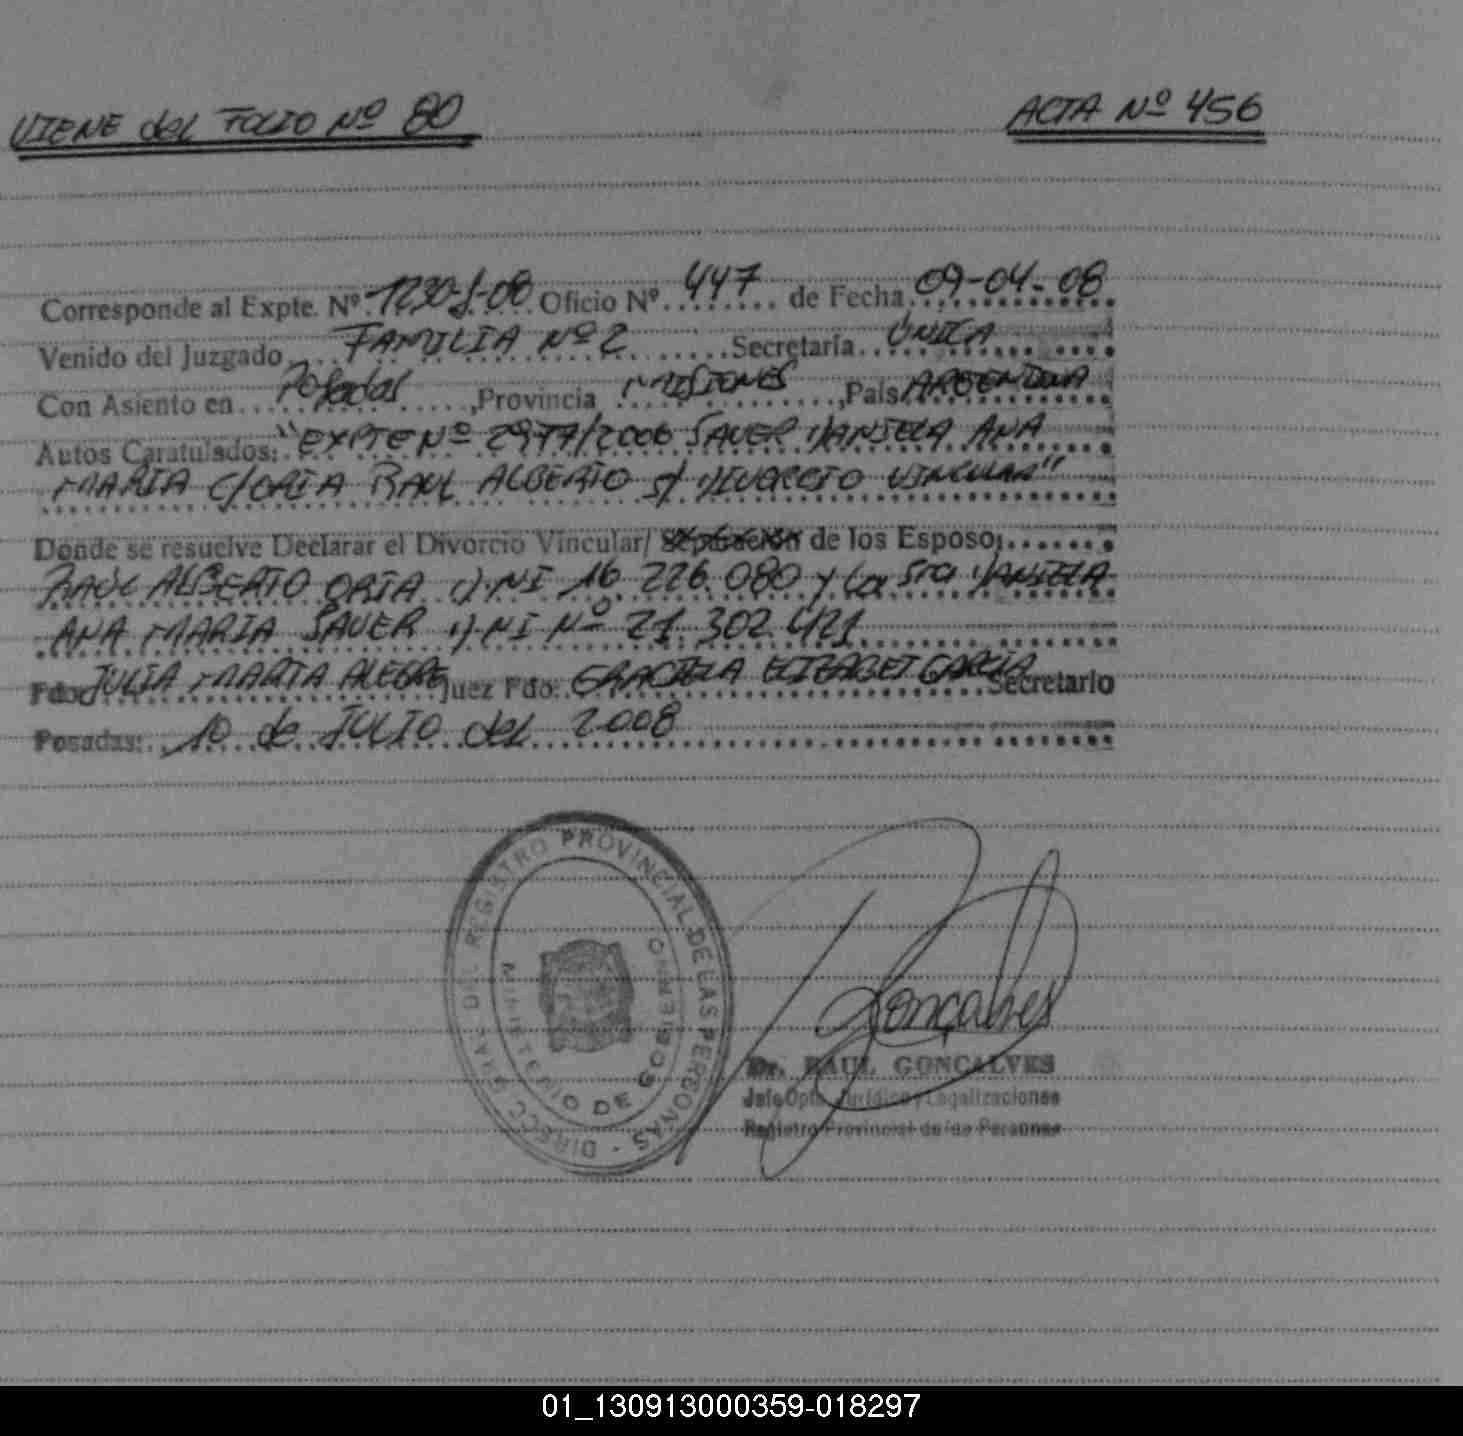 VIENE del FOLIO Nº 80
ACTA Nº 456
Corresponde al Expte. Nº 1230-J-08 Oficio Nº 447 de Fecha 09-04-08
Venido del Juzgado FAMILIA Nº 2 Secretaría ÚNICA
Con Asiento en Posadas, Provincia MISIONES, País ARGENTINA
Autos Caratulados: "EXPTE Nº 2977/2006 SAUER DANIELA ANA
MARIA C/ORIA RAUL ALBERTO S/ DIVORCIO VINCULAR"
Donde se resuelve Declarar el Divorcio Vincular/ Separación de los Esposo:
RAÚL ALBERTO ORIA DNI 16.226.080 y la Sra DANIELA
ANA MARIA SAUER DNI Nº 21.302.421
Fdo: JULIA MARTA ALEGRE Juez Fdo: GRACIELA ELIZABET GARCÍA Secretario
Posadas: 10 de JULIO del 2008
DIRECC. GRAL. DEL REGISTRO PROVINCIAL DE LAS PERSONAS -
MINISTERIO DE GOBIERNO
Goncalves
Dr. RAUL GONCALVES
Jefe Dpto. Jurídico y Legalizaciones
Registro Provincial de las Personas
01_130913000359-018297